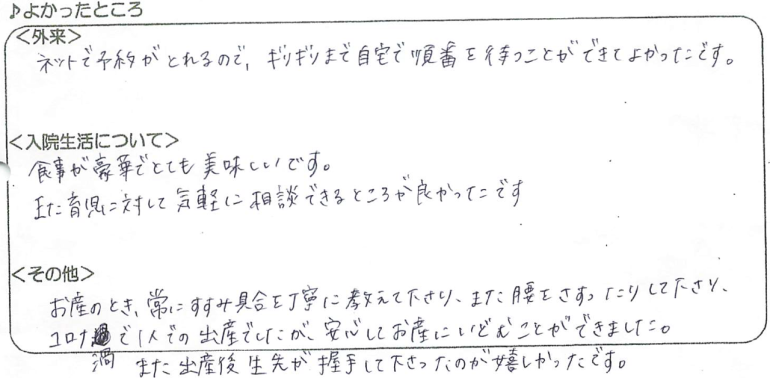 ♪よかったところ
＜外来＞
ネットで予約がとれるので、ギリギリまで自宅で順番を待つことができてよかったです。
＜入院生活について＞
食事が豪華でとても美味しいです。
また育児に対して気軽に相談できるところが良かったです
＜その他＞
お産のとき、常にすすみ具合を丁寧に教えて下さり、また腰をさすったりして下さり、
コロナ渦で1人での出産でしたが、安心してお産にいどむことができました。
また出産後生先が握手して下さったのが嬉しかったです。